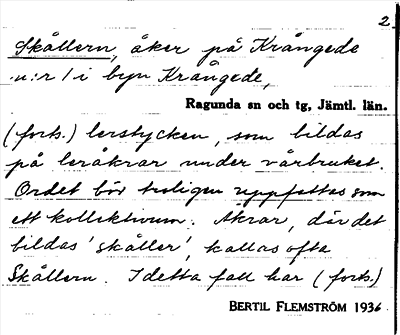 2.
Skållern, åker på Krångede
n:r 1 i byn Krångede,
Ragunda sn och tg, Jämtl. län.
(forts.) lerstycken, som bildas
på leråkrar under vårbruket.
Ordet bör troligen uppfattas som
ett kollektivum. Åkrar, där det
bildas 'skåller', kallas ofta
Skållern. I detta fall har (forts.)
BERTIL FLEMSTRÖM 1936